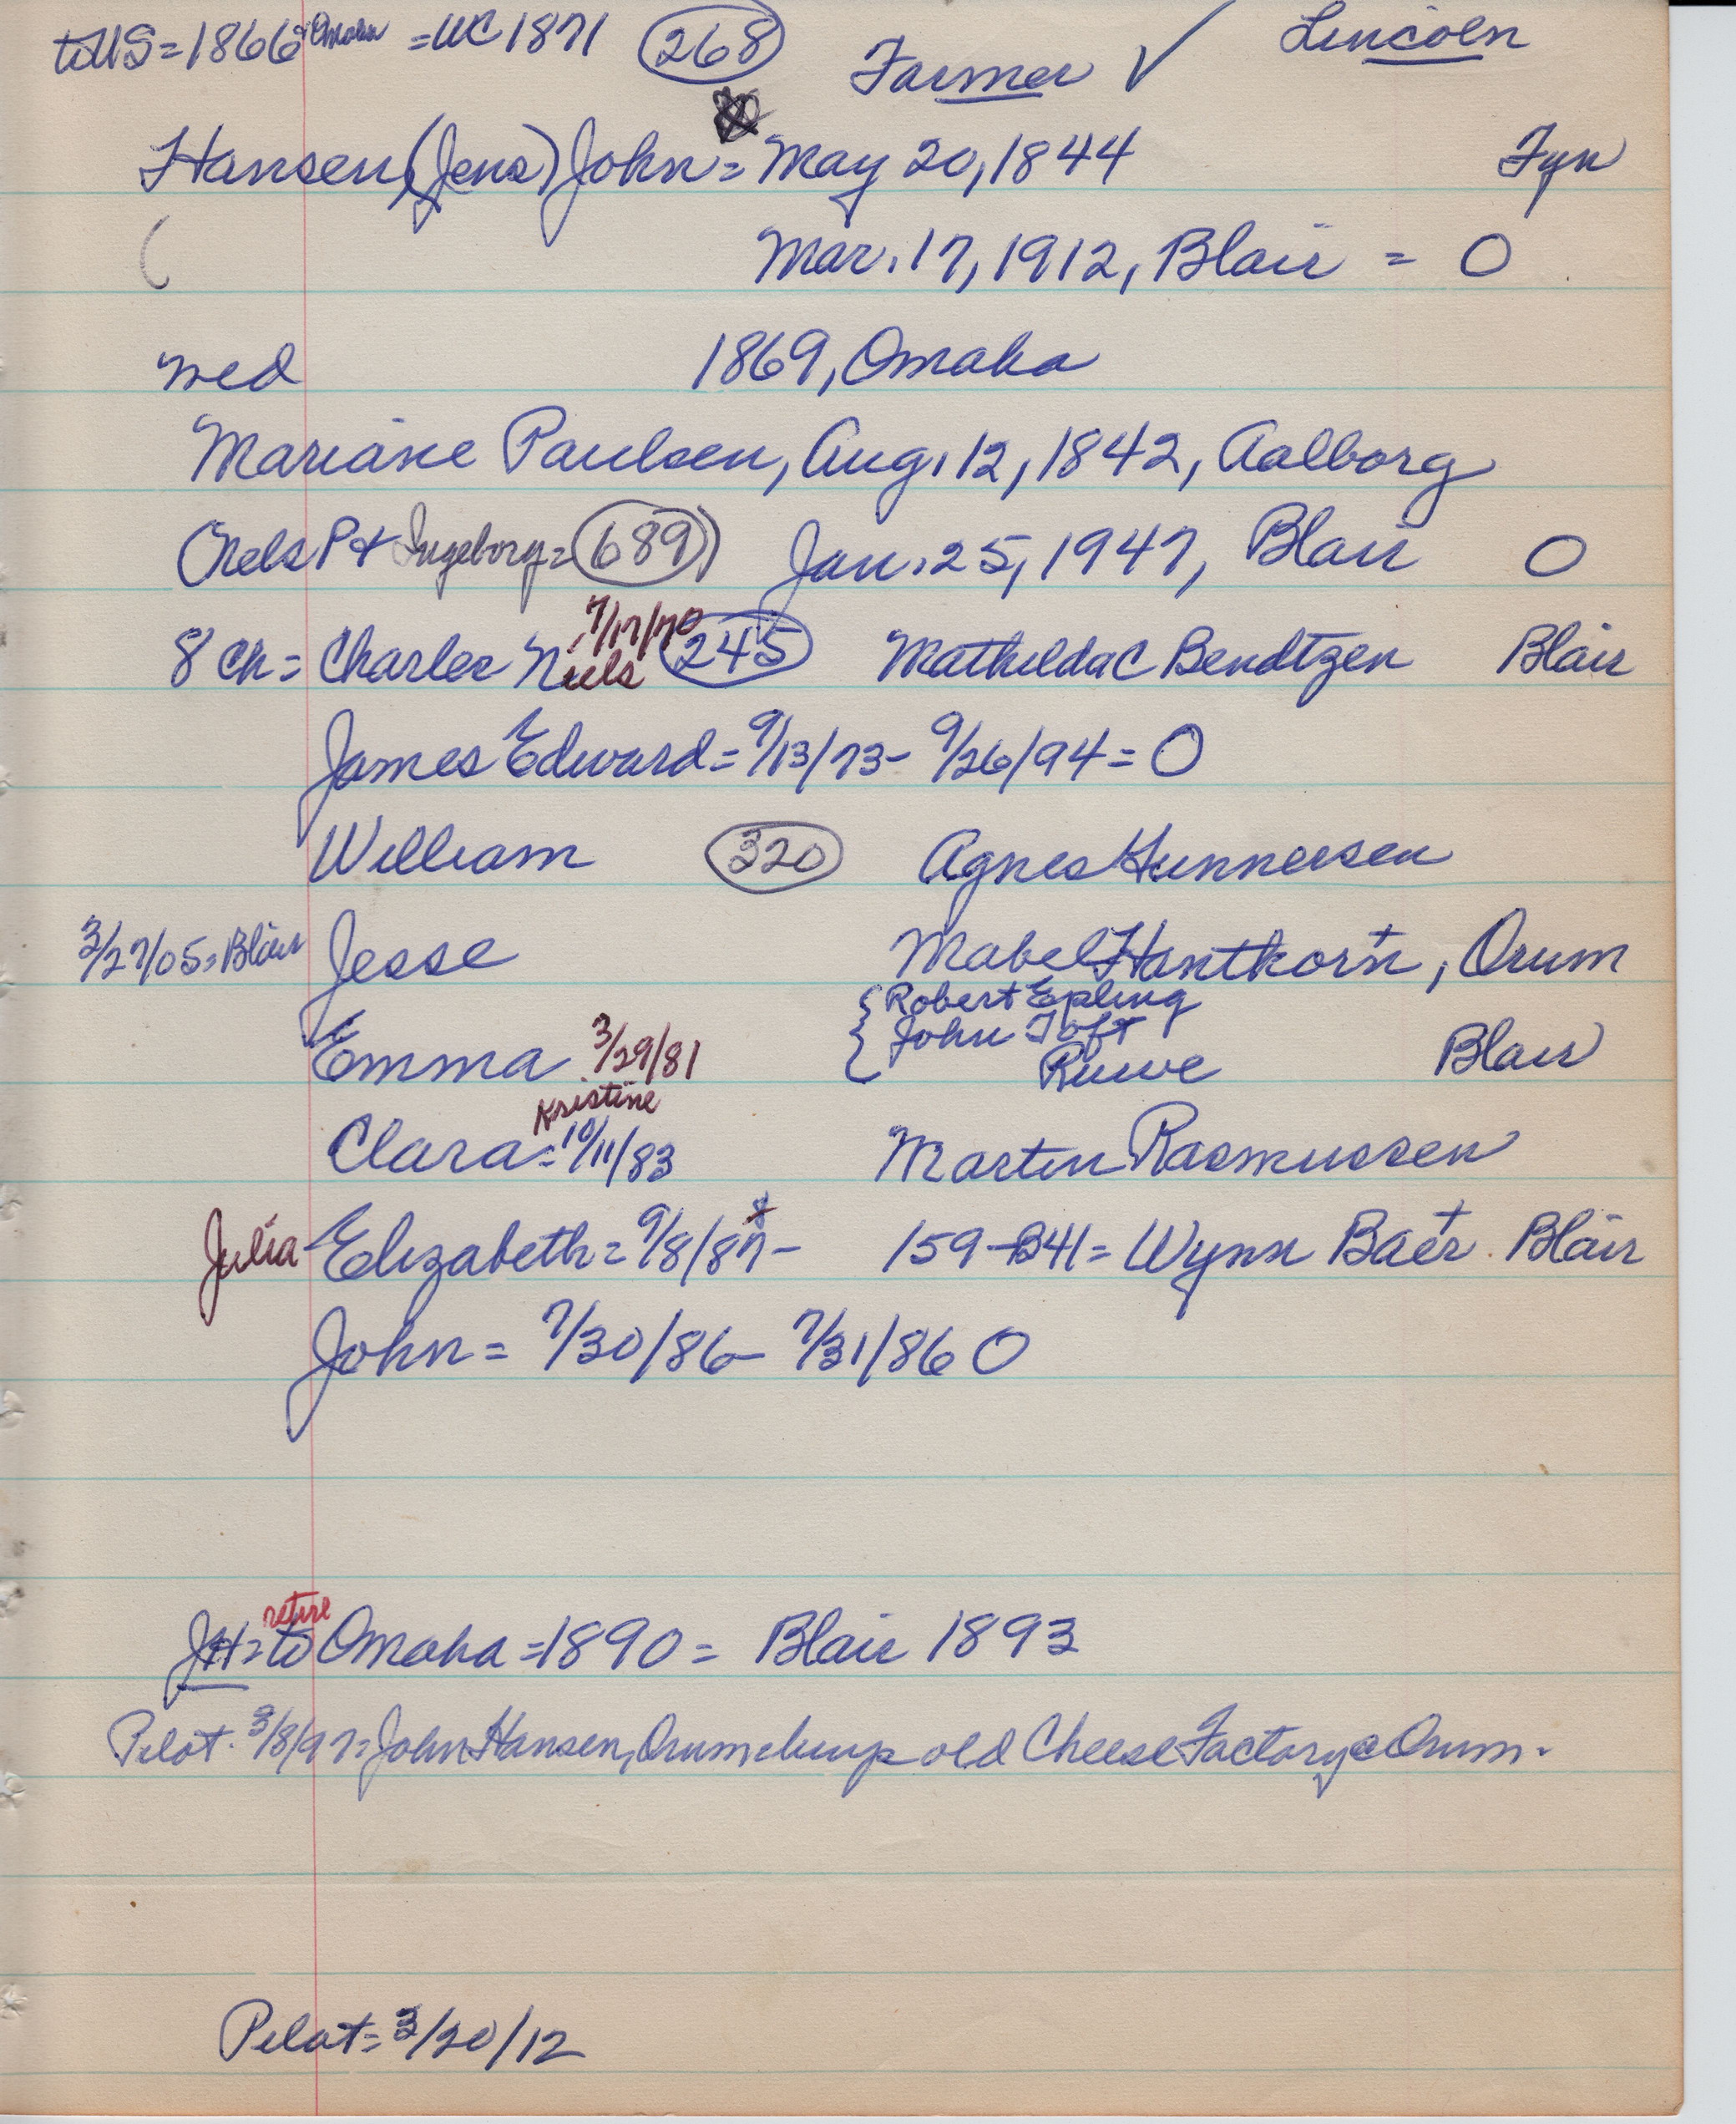 to US = 1866 Omaha = WC 1871 268 Farmer ✓ Lincoln
Hansen, (Jens) John = May 20, 1844 Fyn
Mar. 17, 1912, Blair = O
wed 1869, Omaha
Mariane Paulsen, Aug. 12, 1842, Aalborg
(Nels P + Ingeborg = 689) Jan. 25, 1947, Blair O
7/17/70
8 ch = Charles Niels 245 Mathilda C Bendtzen Blair
James Edward = 9/13/73 - 9/26/94 = O
William 320 Agnes Gunnersen
3/27/05 = Blair Jesse Mabel Hantkorn +, Orum
{ Robert Epling
{ John Toft
Emma 3/29/81 Ruwe Blair
Kristine
Clara = 10/11/83 Martin Rasmussen
8
Julia Elizabeth = 9/8/87 - 159-B41 = Wynn Baer + Blair
John = 7/30/86 - 7/31/86 O
retire
JH = to Omaha = 1890 = Blair 1893
Pilot. 3/8/97 = John Hansen, Orum buys old Cheese Factory @ Orum.
Pilot = 3/20/12